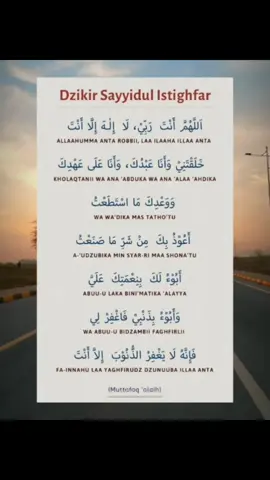 Dzikir Sayyidul Istighfar
اَللَّهُمَّ أَنْتَ رَبِّيْ، لَا إِلٰهَ إِلَّا أَنْتَ
ALLAAHUMMA ANTA ROBBII, LAA ILAAHA ILLAA ANTA
خَلَقْتَنِيْ وَأَنَا عَبْدُكَ، وَأَنَا عَلَى عَهْدِكَ
KHOLAQTANII WA ANA 'ABDUKA WA ANA 'ALAA 'AHDIKA
وَوَعْدِكَ مَا اسْتَطَعْتُ
WA WA'DIKA MAS TATHO'TU
أَعُوْذُ بِكَ مِنْ شَرِّ مَا صَنَعْتُ
A-'UDZUBIKA MIN SYAR-RI MAA SHONA'TU
أَبُوْءُ لَكَ بِنِعْمَتِكَ عَلَيَّ
ABUU-U LAKA BINI'MATIKA 'ALAYYA
وَأَبُوْءُ بِذَنْبِيْ فَاغْفِرْ لِي
WA ABUU-U BIDZAMBII FAGHFIRLII
فَإِنَّهُ لَا يَغْفِرُ الذُّنُوْبَ إِلاَّ أَنْتَ
FA-INNAHU LAA YAGHFIRUDZ DZUNUUBA ILLAA ANTA
(Muttafaq 'alaih)